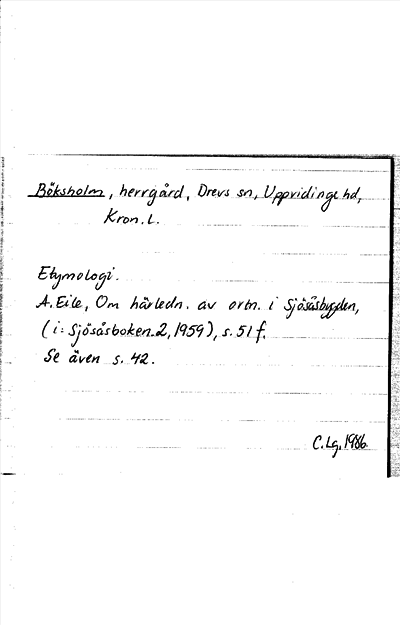 Böksholm, herrgård, Drevs sn, Uppvidinge hd,
Kron. L.
Etymologi.
A. Eile, Om härledn. av ortn. i Sjösåsbygden,
(i: Sjösåsboken. 2, 1959), s. 51 f.
Se även s. 42.
C. Lg. 1986